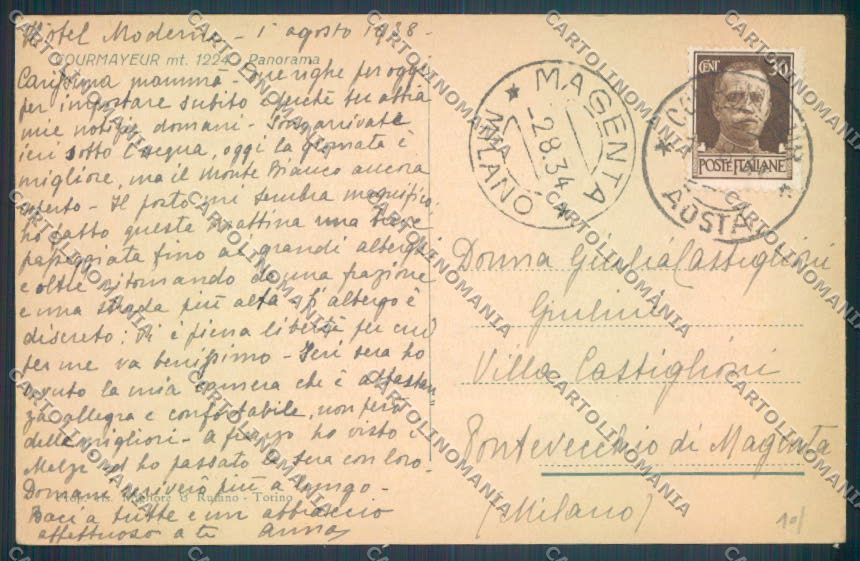 Hotel Moderno - 1° agosto 1938 -
COURMAYEUR mt. 1224 - Panorama
Carissima mamma - due righe per oggi
per impostare subito perchè tu abbia
mie notizie domani - Sono arrivata
ieri sotto l'acqua, oggi la giornata è
migliore, ma il Monte Bianco ancora
coperto - Il posto mi sembra magnifico,
ho fatto questa mattina una
passeggiata fino ai grandi alberghi
e oltre ritornando da una frazione
e una strada più alta - L'albergo è
discreto: Vi è piena libertà per cui
per me va benissimo - Ieri sera ho
avuto la mia camera che è abbastan
za allegra e confortabile, non però
delle migliori - A pranzo ho visto i
Melzi ed ho passato la sera con loro -
Domani scriverò più a lungo -
Torino
Baci a tutte e un abbraccio
affettuoso a te Anna
MAGENTA
MILANO
-2.8.34
CENT 30
POSTE ITALIANE
AOSTA
Donna Giulia Castiglioni
Giulini
Villa Castiglioni
Pontevecchio di Magenta
(Milano)
10/
CARTOLINOMANIA